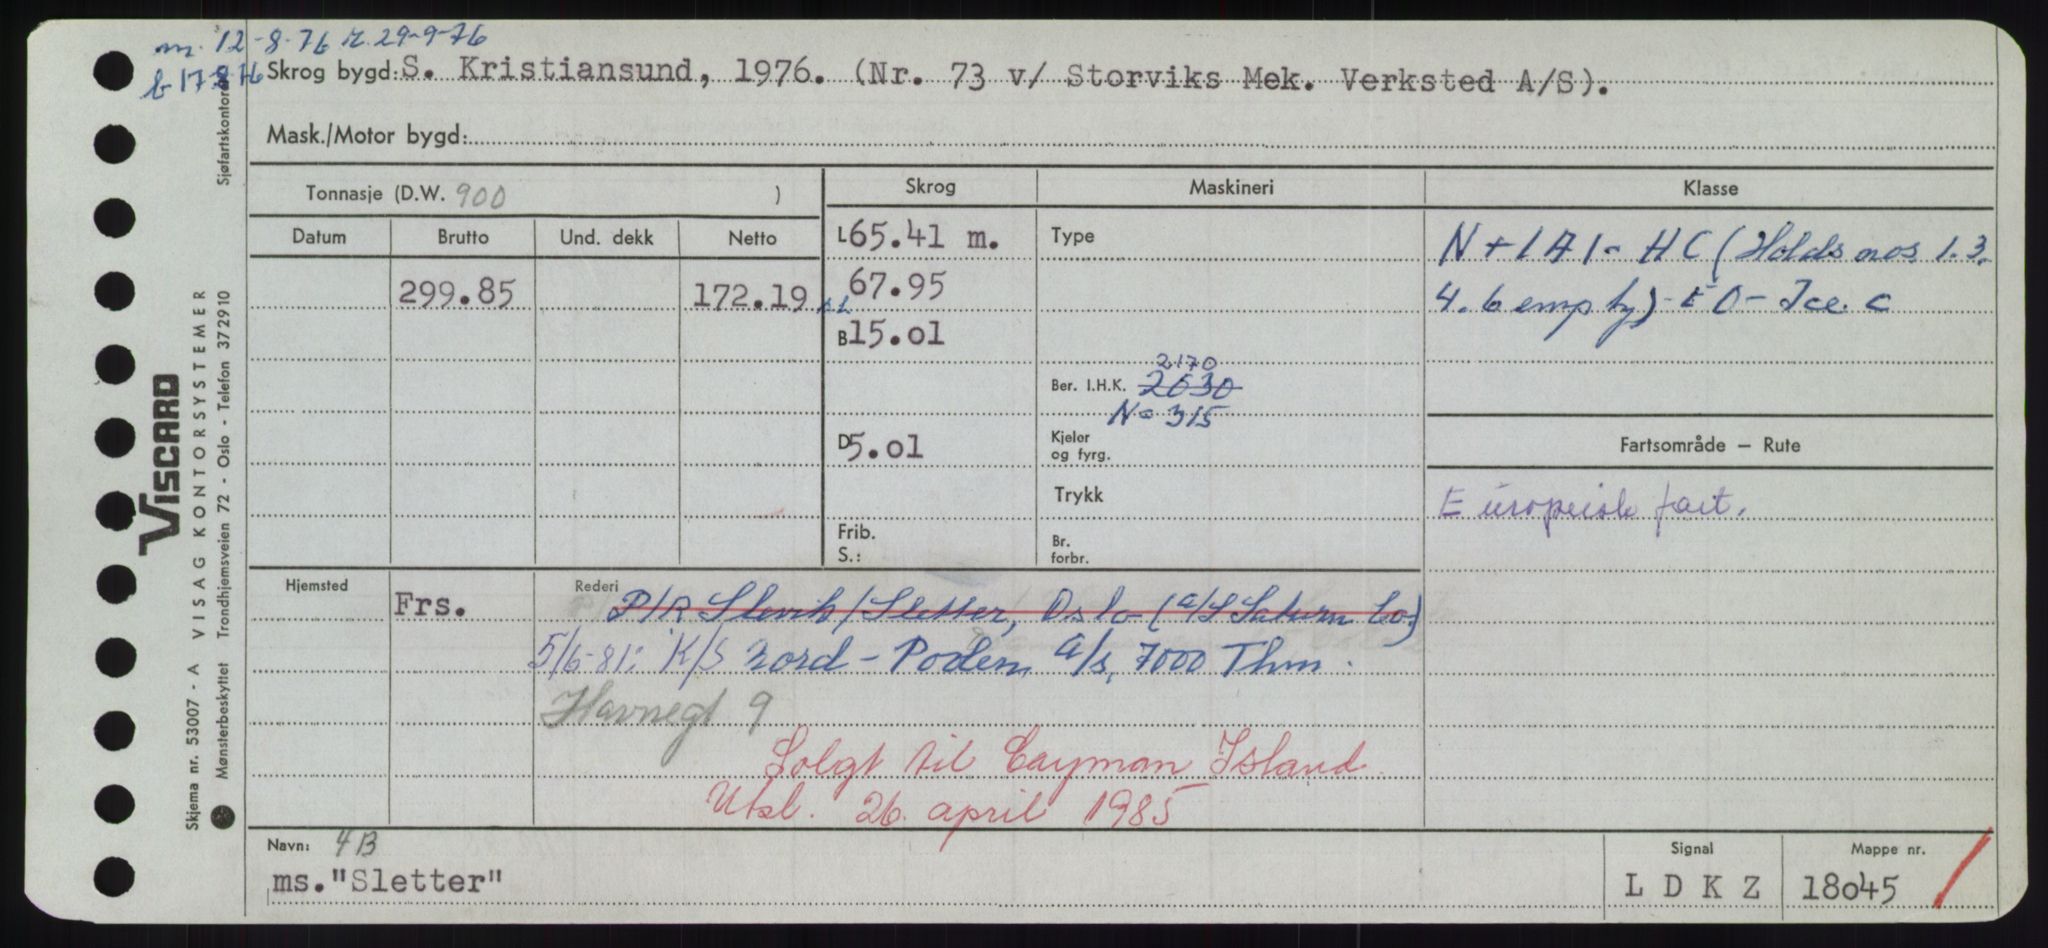 m. 12-8-76 r. 29-9-76
b 17-8-76
Skrog bygd: S. Kristiansund, 1976. (Nr. 73 v/ Storviks Mek. Verksted A/S).
Mask./Motor bygd:
Tonnasje (D.W. 900 )
Skrog
Maskineri
Klasse
Datum
Brutto
Und. dekk
Netto
299.85
172.19
L 65.41 m.
67.95
B 15.01
D 5.01
Frib.
S.:
Type
2170
Ber. I.H.K. 2030
N= 315
Kjeler
og fyrg.
Trykk
Br.
forbr.
N + 1A1 - HC (Holds nos 1.3.
4. 6 empty) - EO - Ice. C
Fartsområde — Rute
Europeisk fart.
Hjemsted
Frs.
Rederi
P/R Slevik/Sletter, Oslo (A/S Saturn Co.)
5/6-81: K/S Nord - Poden A/S, 7000 Thm.
Havnegt 9
Solgt til Cayman Island
Utsl. 26. april 1985
Navn: 4B
ms. "Sletter"
Signal
L D K Z
Mappe nr.
18045
VISCARD
Skjema nr. 53007 - A VISAG KONTORSYSTEMER
Mønsterbeskyttet Trondhjemsveien 72 - Oslo - Telefon 372910
Sjøfartskontoret